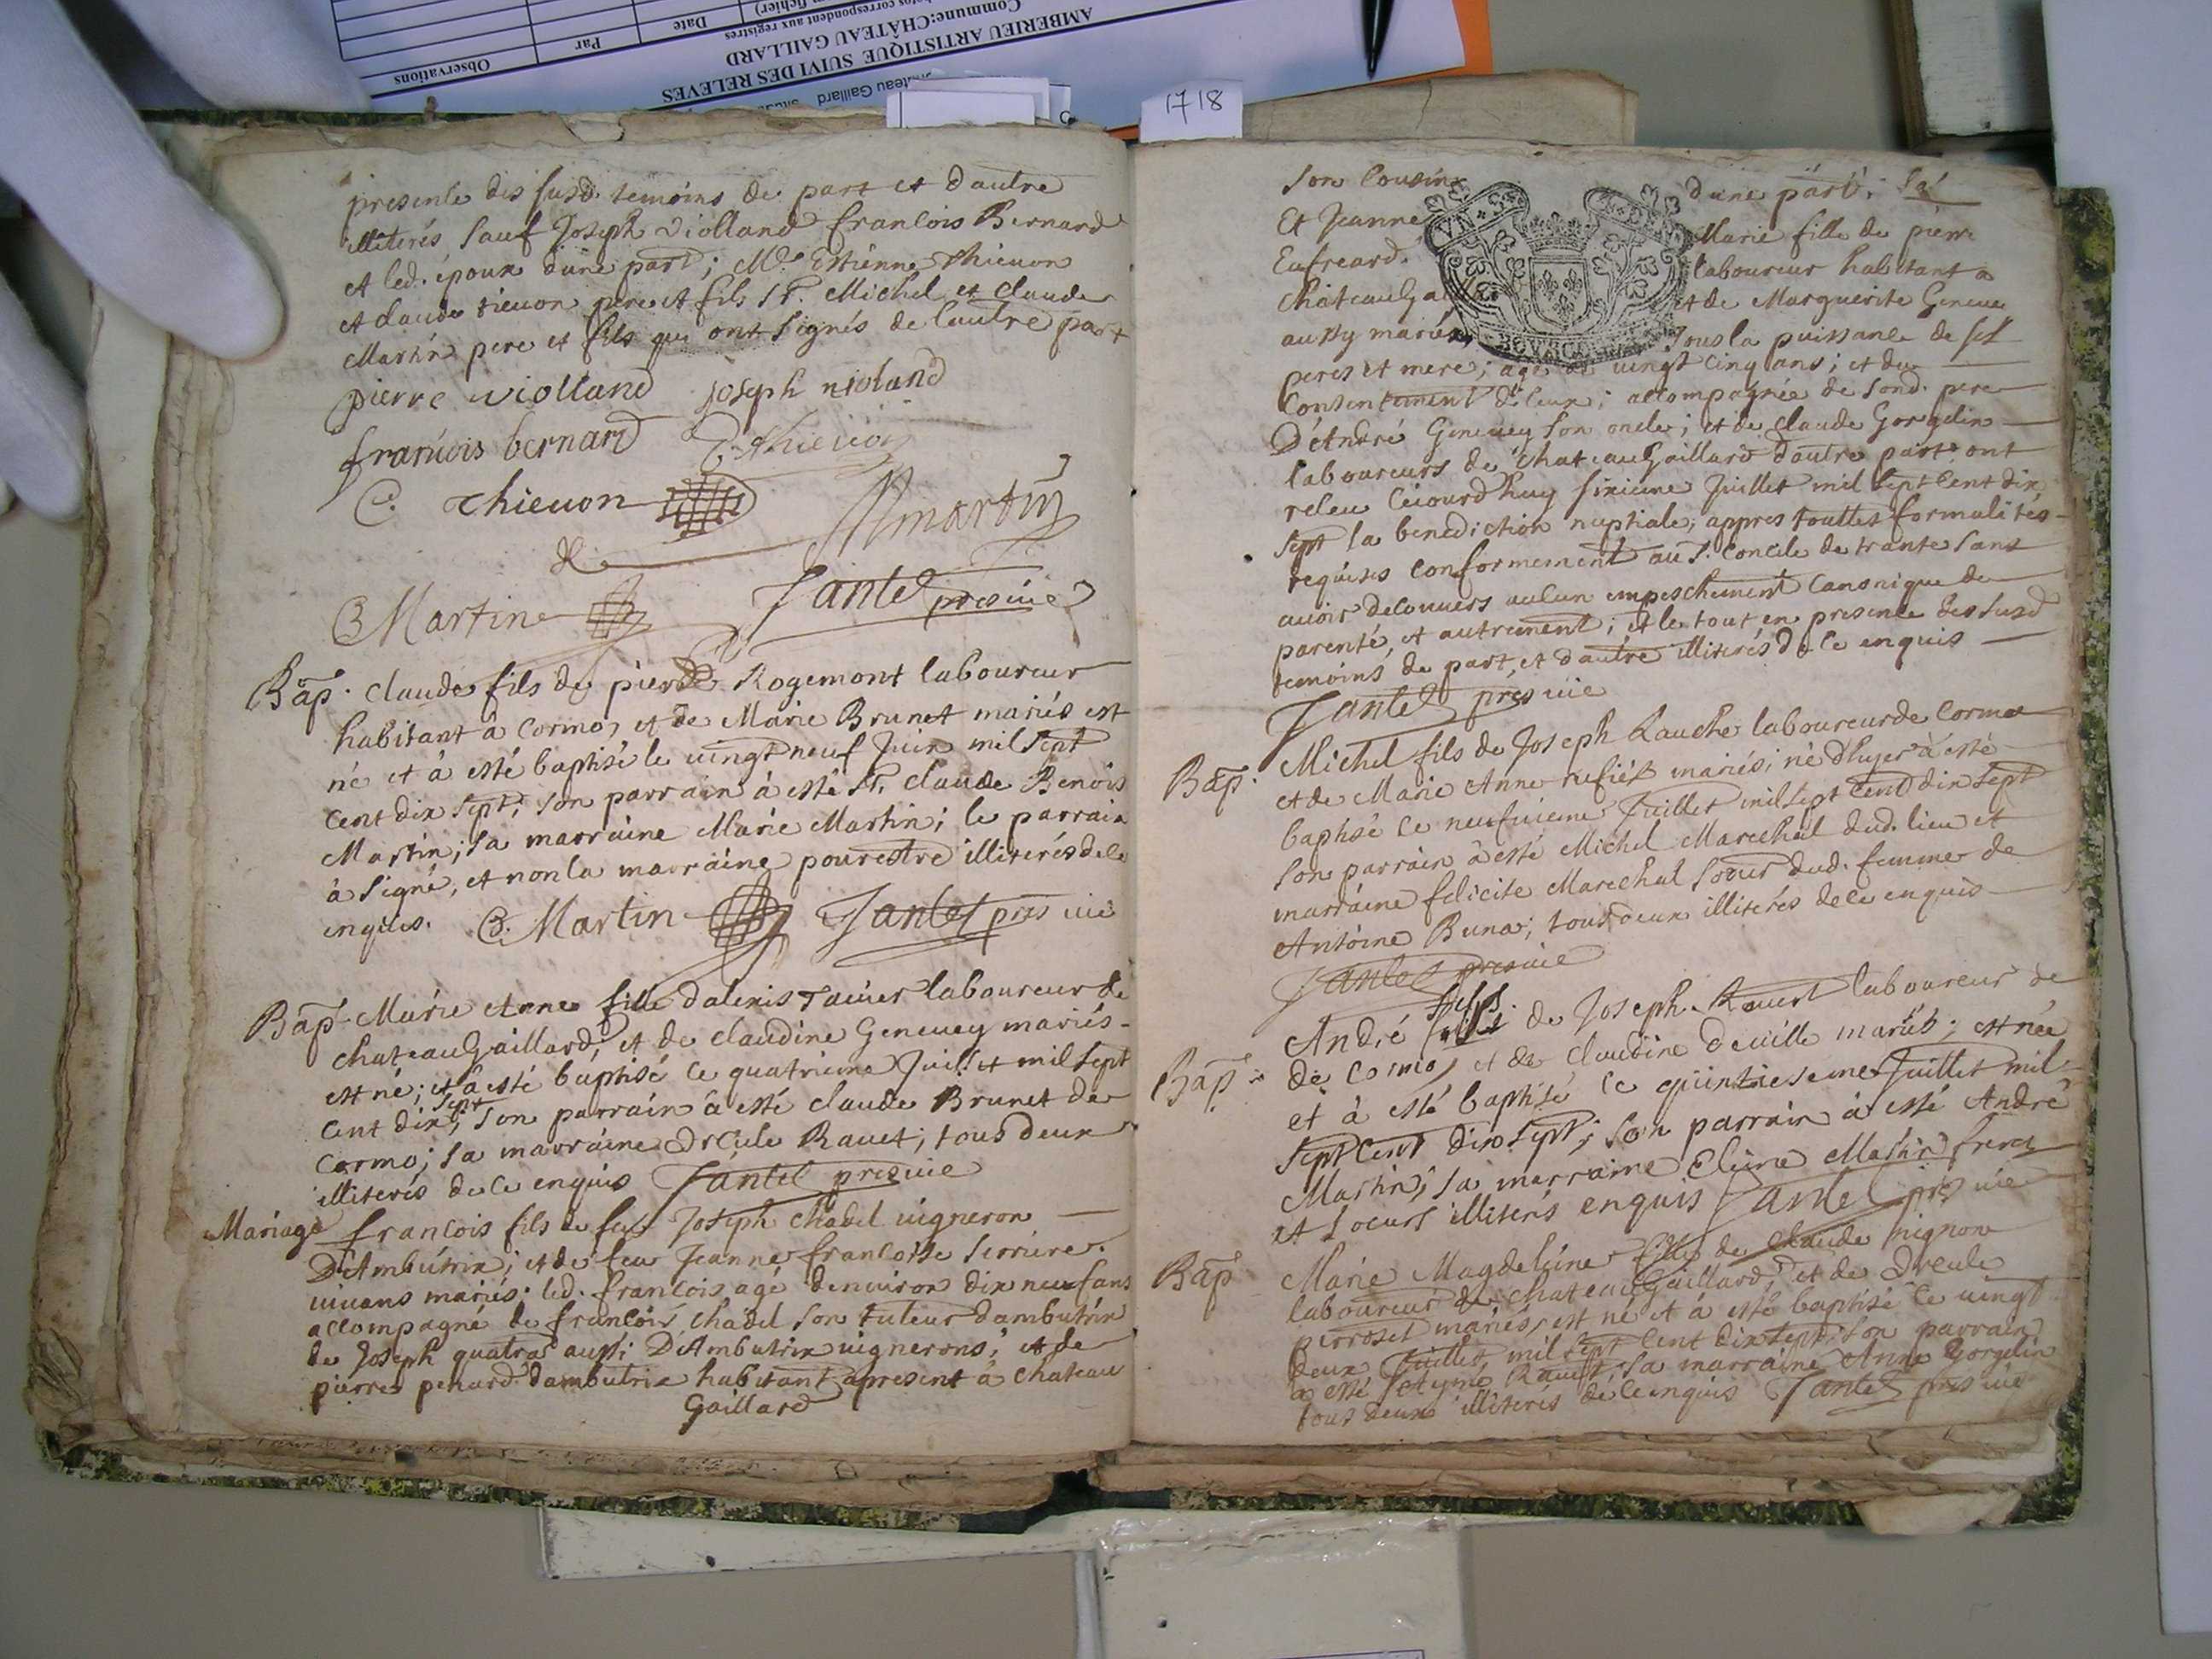 Observations
Par
Date
AMBERIEU ARTISTIQUE SUIVI DES RELEVES
Commune:CHÂTEAU GAILLARD
correspondent aux registres
fichier)
Gaillard
1718
presente des susd. temoins de part et dautre
illiterés sauf Joseph violland francois Bernard
et led. époux dune part; Mr. Estienne thieuon
et claude tieuon pere et fils Sr. Michel et claude
Martin pere et fils qui ont signés de lautre part
pierre violland joseph violand
francois bernard thieuon
C. thieuon Martin
C Martin Jantet pres vic
Bap. claude fils de pierre Rogemont laboureur
habitant à Cormo, et de Marie Brunet mariés est
né et à esté baptisé le uingt neuf Juin mil sept
cent dix sept; son parrain à esté Sr. claude Benois
Martin; sa marraine Marie Martin; le parrain
à signé, et non la marraine pour estre illiterés de ce
enquis. C. Martin Jantet pres vic
Bap. Marie Anne fille dalexis tauier laboureur de
chateauGaillard, et de claudine Geneuey mariés
est né; et à esté baptisé ce quatrieme Juillet mil sept
cent dix sept, son parrain à esté claude Brunet de
Cormo; sa marraine Vrcule Rauet; tous deux
illiterés de ce enquis Jantet pres vic
Mariage francois fils de feu Joseph chadel uigneron
D'Ambutrix; et de feue Jeanne francoise serriere
uiuans mariés; led. francois agé denuiron dix neuf ans
accompagné de francois chadel son tuteur dambutrix
de Joseph quatra aussi D'Ambutrix uignerons; et de
pierre penard dambutrix habitant apresent à chateau
Gaillard
son cousin dune part; et
Et Jeanne Marie fille de pierre
Eufreard laboureur habitant a
chateauGa et de Marguerite Geneuey
aussy mariés, sous la puissance de ses
peres et mere; agé de uingt cinq ans; et du
consentement diceux; accompagnée de sond. pere
D'André Geneuey son oncle; et de claude Gorgelin
laboureurs de chateauGaillard dautre part ont
receu cejourdhuy sixieme Juillet mil sept cent dix
sept la benediction nuptiale; appres touttes formalités
requises conformement au St. Concile de trante sans
auoir decouuers aucun empeschement canonique de
parenté, et autrement; et le tout en presence des susd
temoins de part, et dautre illiterés de ce enquis
Jantet pres vic
Bap. Michel fils de Joseph Rauche laboureur de Cormo
et de Marie Anne rufiét mariés; né dhyer à esté
baptisé ce neufuieme Juillet mil sept cent dix sept
son parrain à esté Michel Marechal dud. lieu et
marraine felicite Marechal soeur dud. femme de
Antoine Buna; tous deux illiterés de ce enquis
Jantet pres vic
Bap. André fils de Joseph Rauet laboureur de
de Cormo, et de claudine deuille mariés; est née
et à esté baptisé ce quinziesme Juillet mil
sept cent dix sept; son parrain à esté André
Martin; sa marraine Martin freres
et soeurs illiterés enquis Jantet pres vic
Bap. Marie Magdeleine fille de claude mignon
laboureur de chateauGaillard, et de Vrcule
perroset mariés, est né et à esté baptisé ce uingt
deux Juillet mil sept cent dix sept; son parrain
a esté Aymé Rauet; sa marraine Anne Gorgelin
tous deux illiterés de ce enquis Jantet pres vic